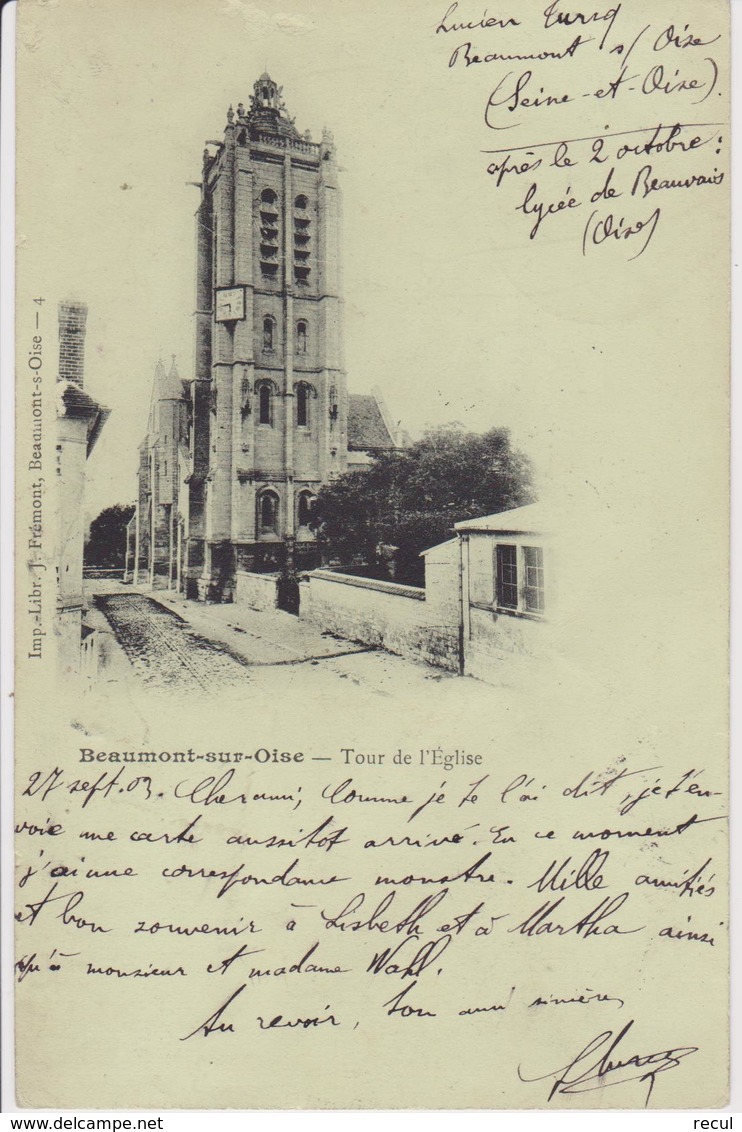 Lucien Turcq
Beaumont s/ Oise
(Seine-et-Oise).
après le 2 octobre :
lycée de Beauvais
(Oise)
Imp.-Libr. J. Frémont, Beaumont-s-Oise — 4
Beaumont-sur-Oise — Tour de l'Église
27 sept. 03. Cher ami, Comme je te l'ai dit, je t'en-
voie une carte aussitot arrivé. En ce moment
j'ai une correspondance monstre. Mille amitiés
et bon souvenir à Lisbeth et à Martha ainsi
qu'à monsieur et madame Wahl.
Au revoir, Ton ami sincère,
recul